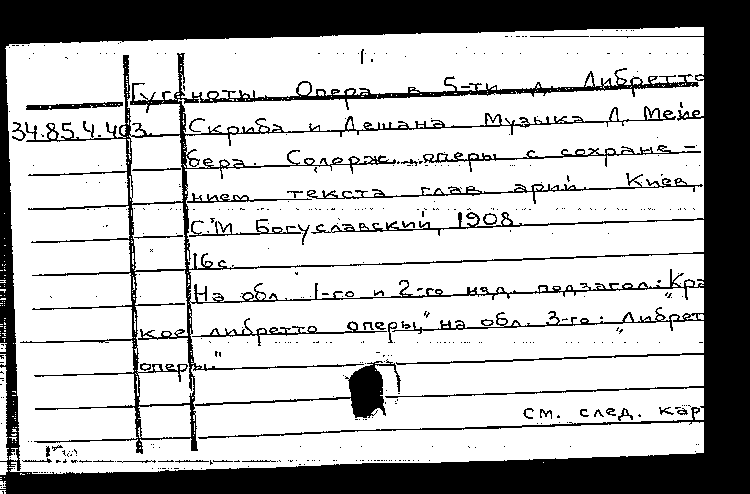 1.
Гугеноты. Опера в 5-ти д. Либретто
34.85.4.403 Скриба и Дешана. Музыка Д. Мейе
бера. Содерж. оперы с сохране=
нием текста глав. арий. Киев,
С.М. Богуславский, 1908.
16 с.
На обл. 1-го и 2-го изд. подзагол.: „Кра
кое либретто оперы," на обл. 3-го: „Либрет
оперы."
см. след. кар